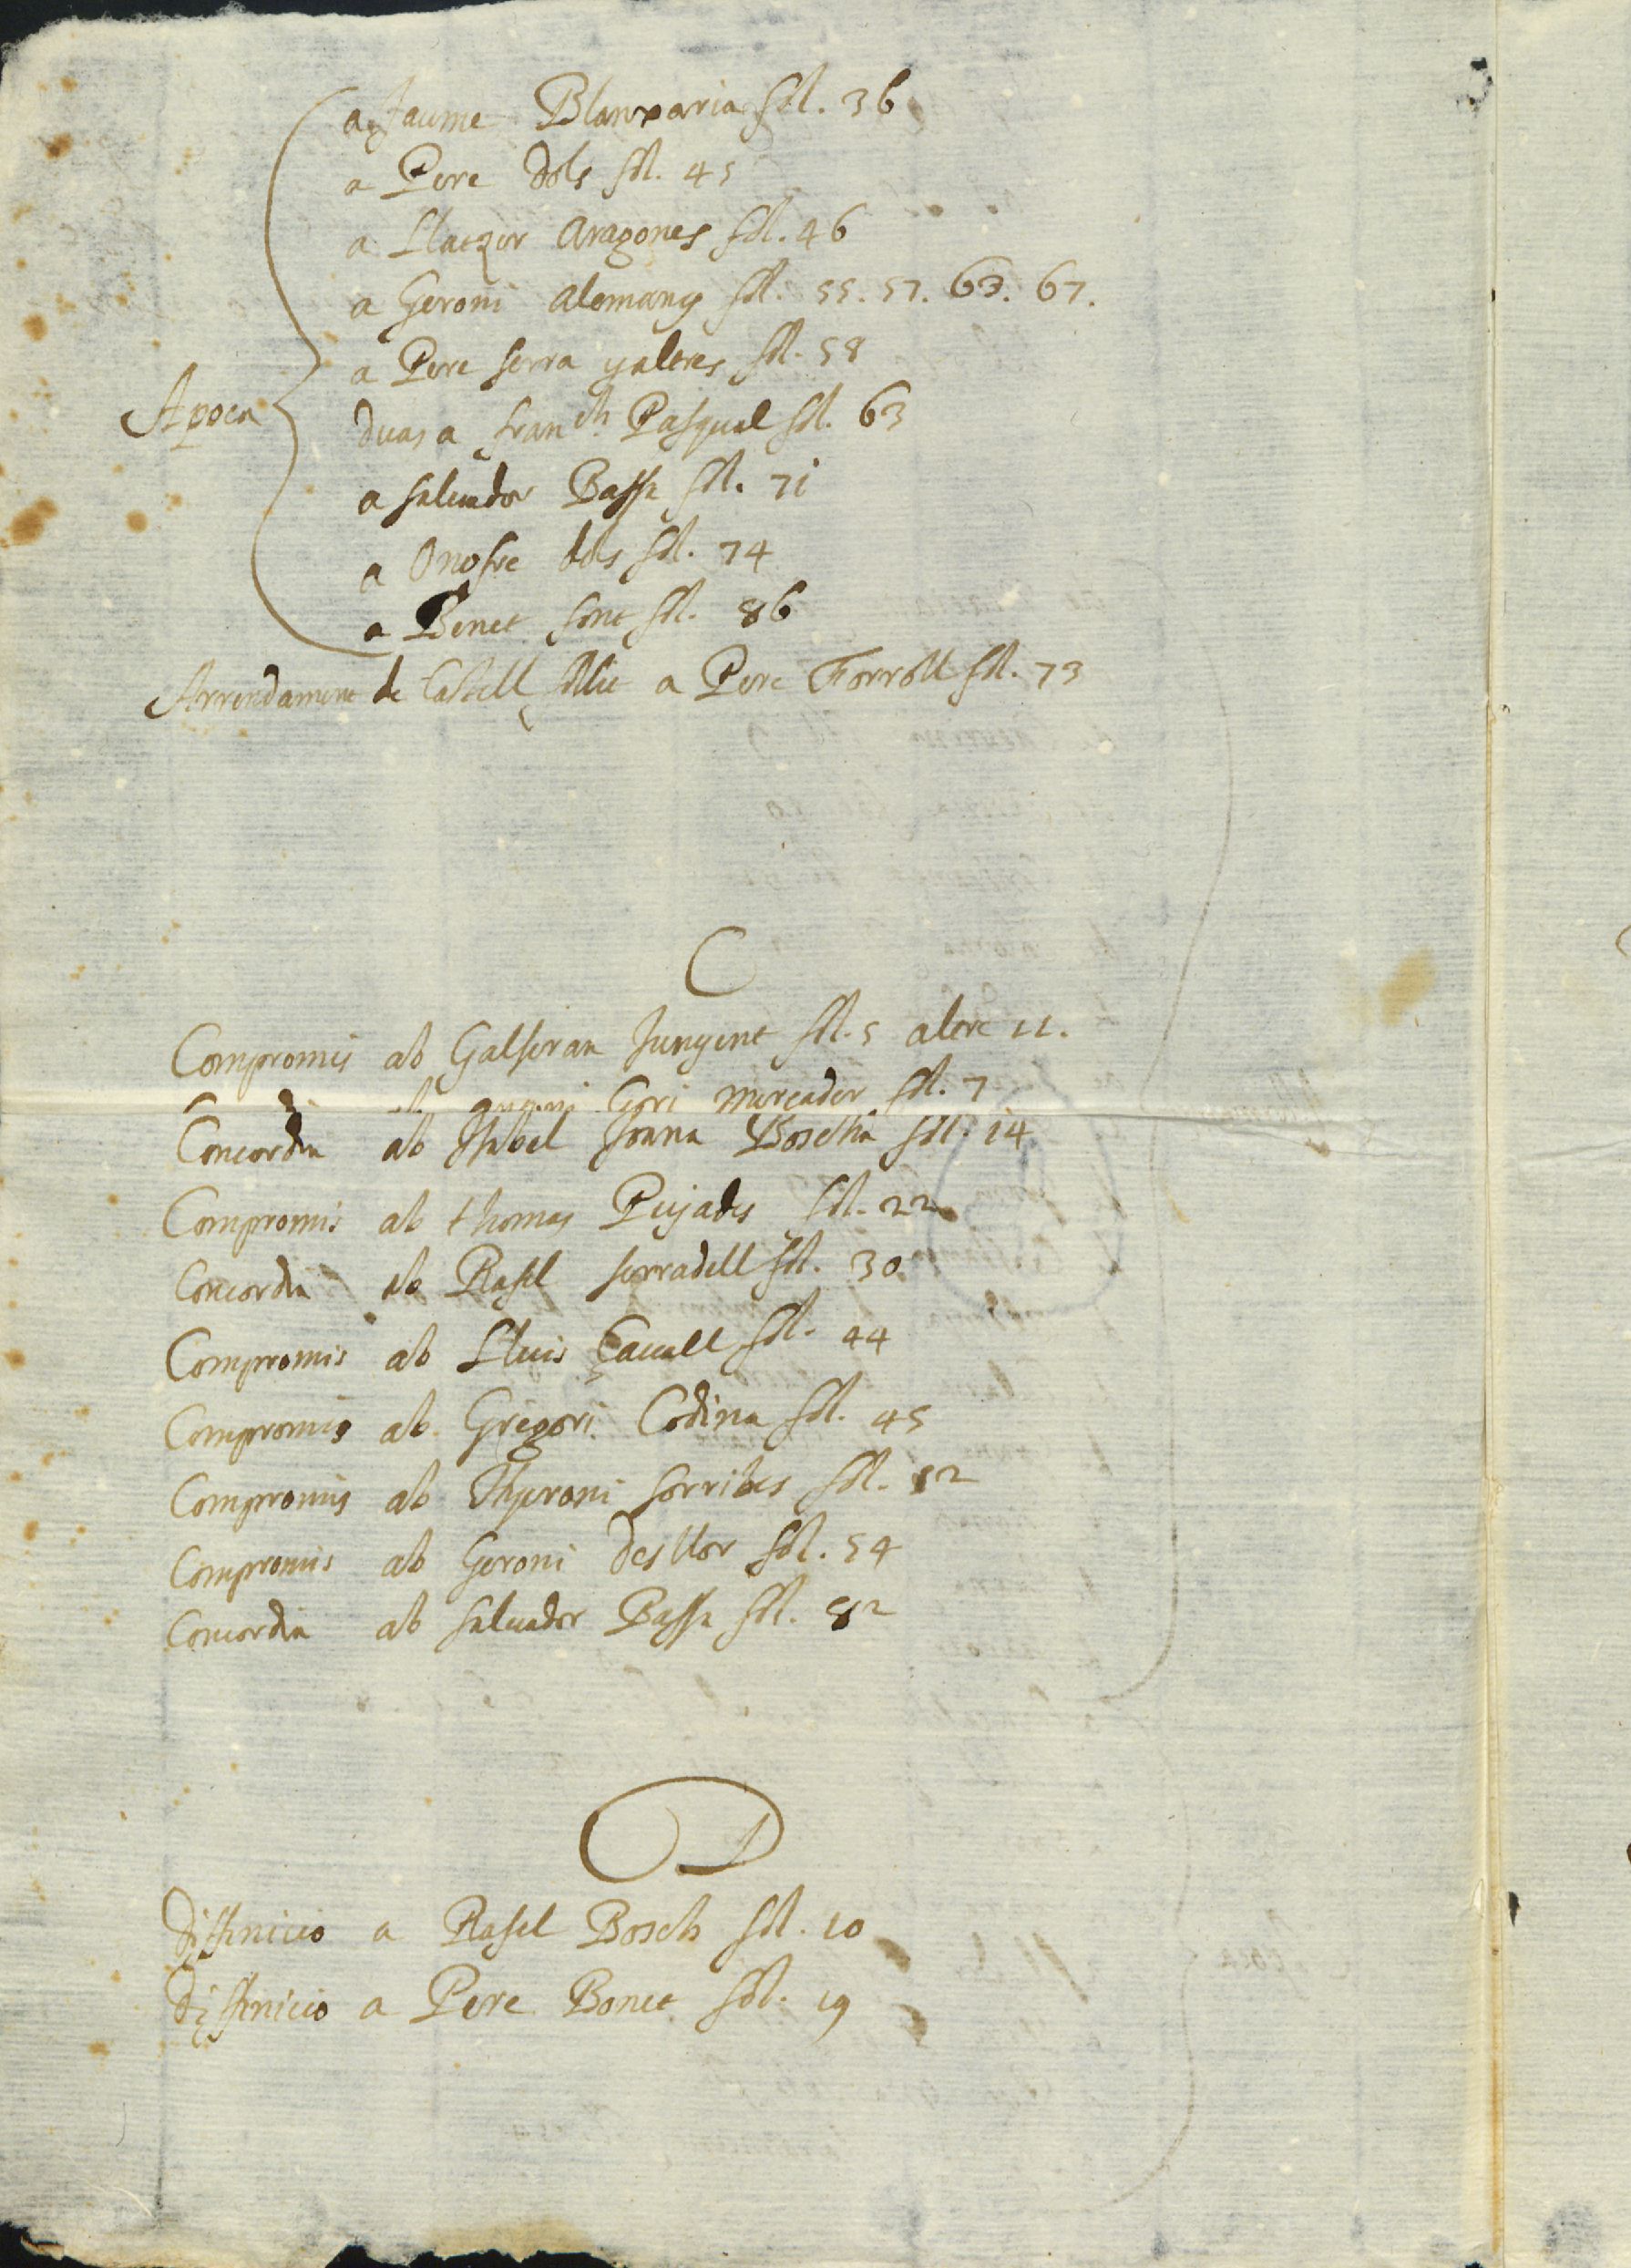 a Jaume Blanxaria fol. 36
a Pere dols fol. 45
a Llatzer Aragones fol. 46
a Geroni Alemany fol. 55. 57. 63. 67.
a Pere serra y altres fol. 58
Apoca
duas a franch Pasqual fol. 63
a saluador Bassa fol. 71
a Onofre dols fol. 74
a Benet font fol. 86
Arrendament de Castell follit a Pere Forroll fol. 73
C
Compromis ab Galseran Junyent fol. 5 altre 11.
Gori mercader fol. 7
Concordia ab Isabel Joana Boschia fol. 14
Compromis ab thomas Pujades fol. 22
Concordia ab Rafel serradell fol. 30
Compromis ab Lluis Cauall fol. 44
Compromis ab Gregori Codina fol. 45
Compromis ab Hyeroni sorribes fol. 52
Compromis ab Geroni desllor fol. 54
Concordia ab saluador Bassa fol. 82
D
diffinicio a Rafel Bosch fol. 10
diffinicio a Pere Bonet fol. 19